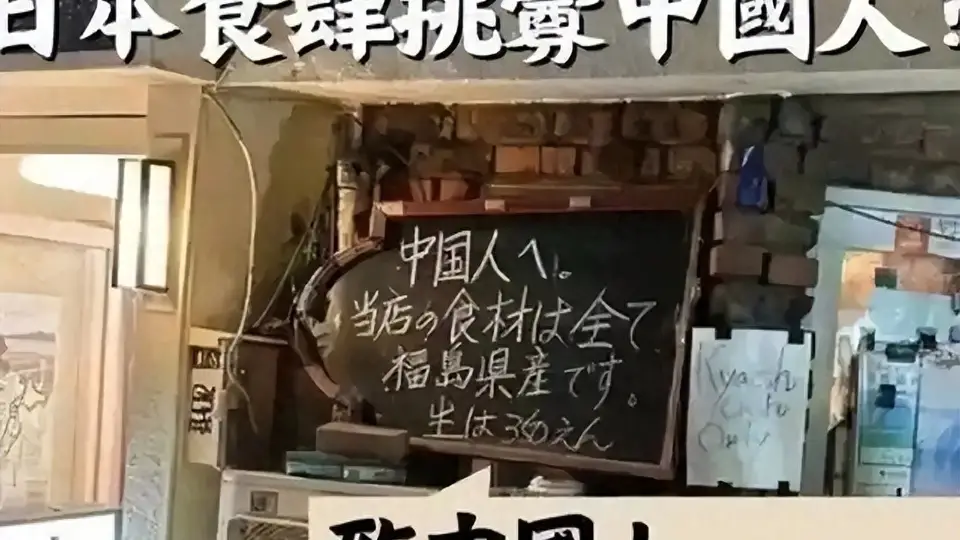 日本食肆挑釁中國人
中国人へ。
当店の食材は全て
福島県産です。
生は えん
Only
致中國人